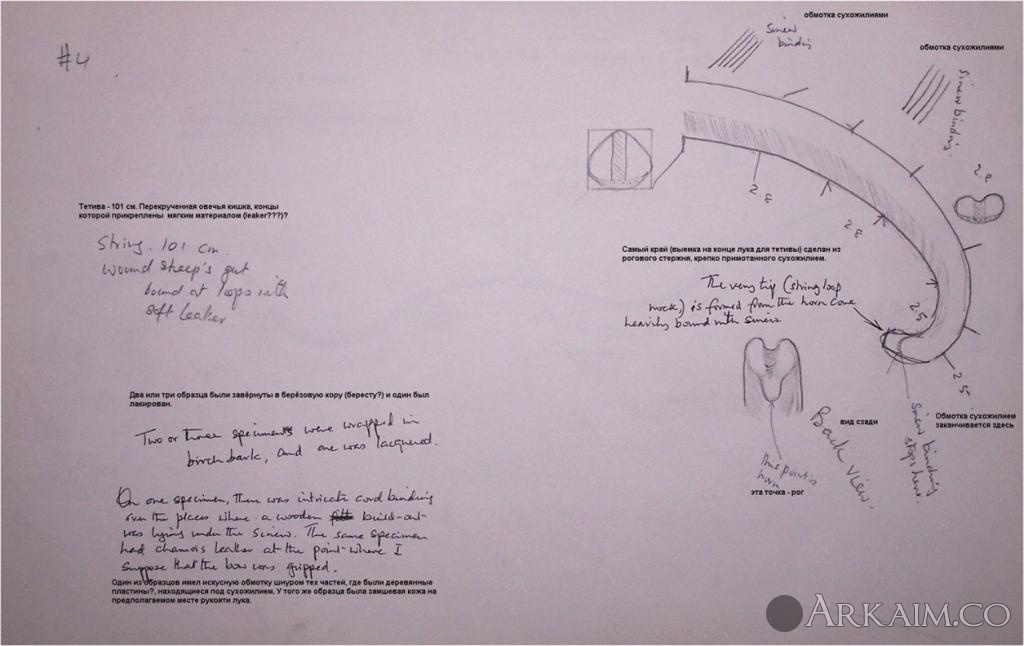 #4
Тетива - 101 см. Перекрученная овечья кишка, концы
которой прикреплены мягким материалом (leaker???)?
String. 101 cm.
wound sheep's gut
bound at loops with
soft leather
Два или три образца были завёрнуты в берёзовую кору (бересту?) и один был
лакирован.
Two or three specimens were wrapped in
birch bark, and one was lacquered.
On one specimen, there was intricate cord binding
over the places where a wooden build-out
was lying under the sinew. The same specimen
had chamois leather at the point where I
suppose that the bow was gripped.
Один из образцов имел искусную обмотку шнуром тех частей, где были деревянные
пластины?, находящиеся под сухожилием. У того же образца была замшевая кожа на
предполагаемом месте рукояти лука.
обмотка сухожилиями
Sinew
binding
обмотка сухожилиями
Sinew binding.
2.8
2.8
2.8
Самый край (выемка на конце лука для тетивы) сделан из
рогового стержня, крепко примотанного сухожилием.
The very tip (string loop
nock,) is formed from the horn core
heavily bound with sinew.
2.5
2.5
Обмотка сухожилием
заканчивается здесь
Sinew binding
stops here.
вид сзади
Back view.
This point is
horn
эта точка - рог
ARKAIM.CO